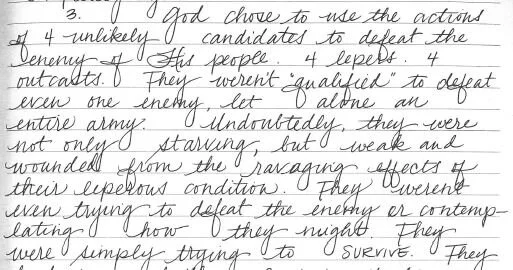 3. God chose to use the actions
of 4 unlikely candidates to defeat the
enemy of His people. 4 lepers. 4
outcasts. They weren't "qualified" to defeat
even one enemy, let alone an
entire army. Undoubtedly, they were
not only starving, but weak and
wounded from the ravaging effects of
their leperous condition. They weren't
even trying to defeat the enemy or contemp-
lating how they might. They
were simply trying to SURVIVE. They